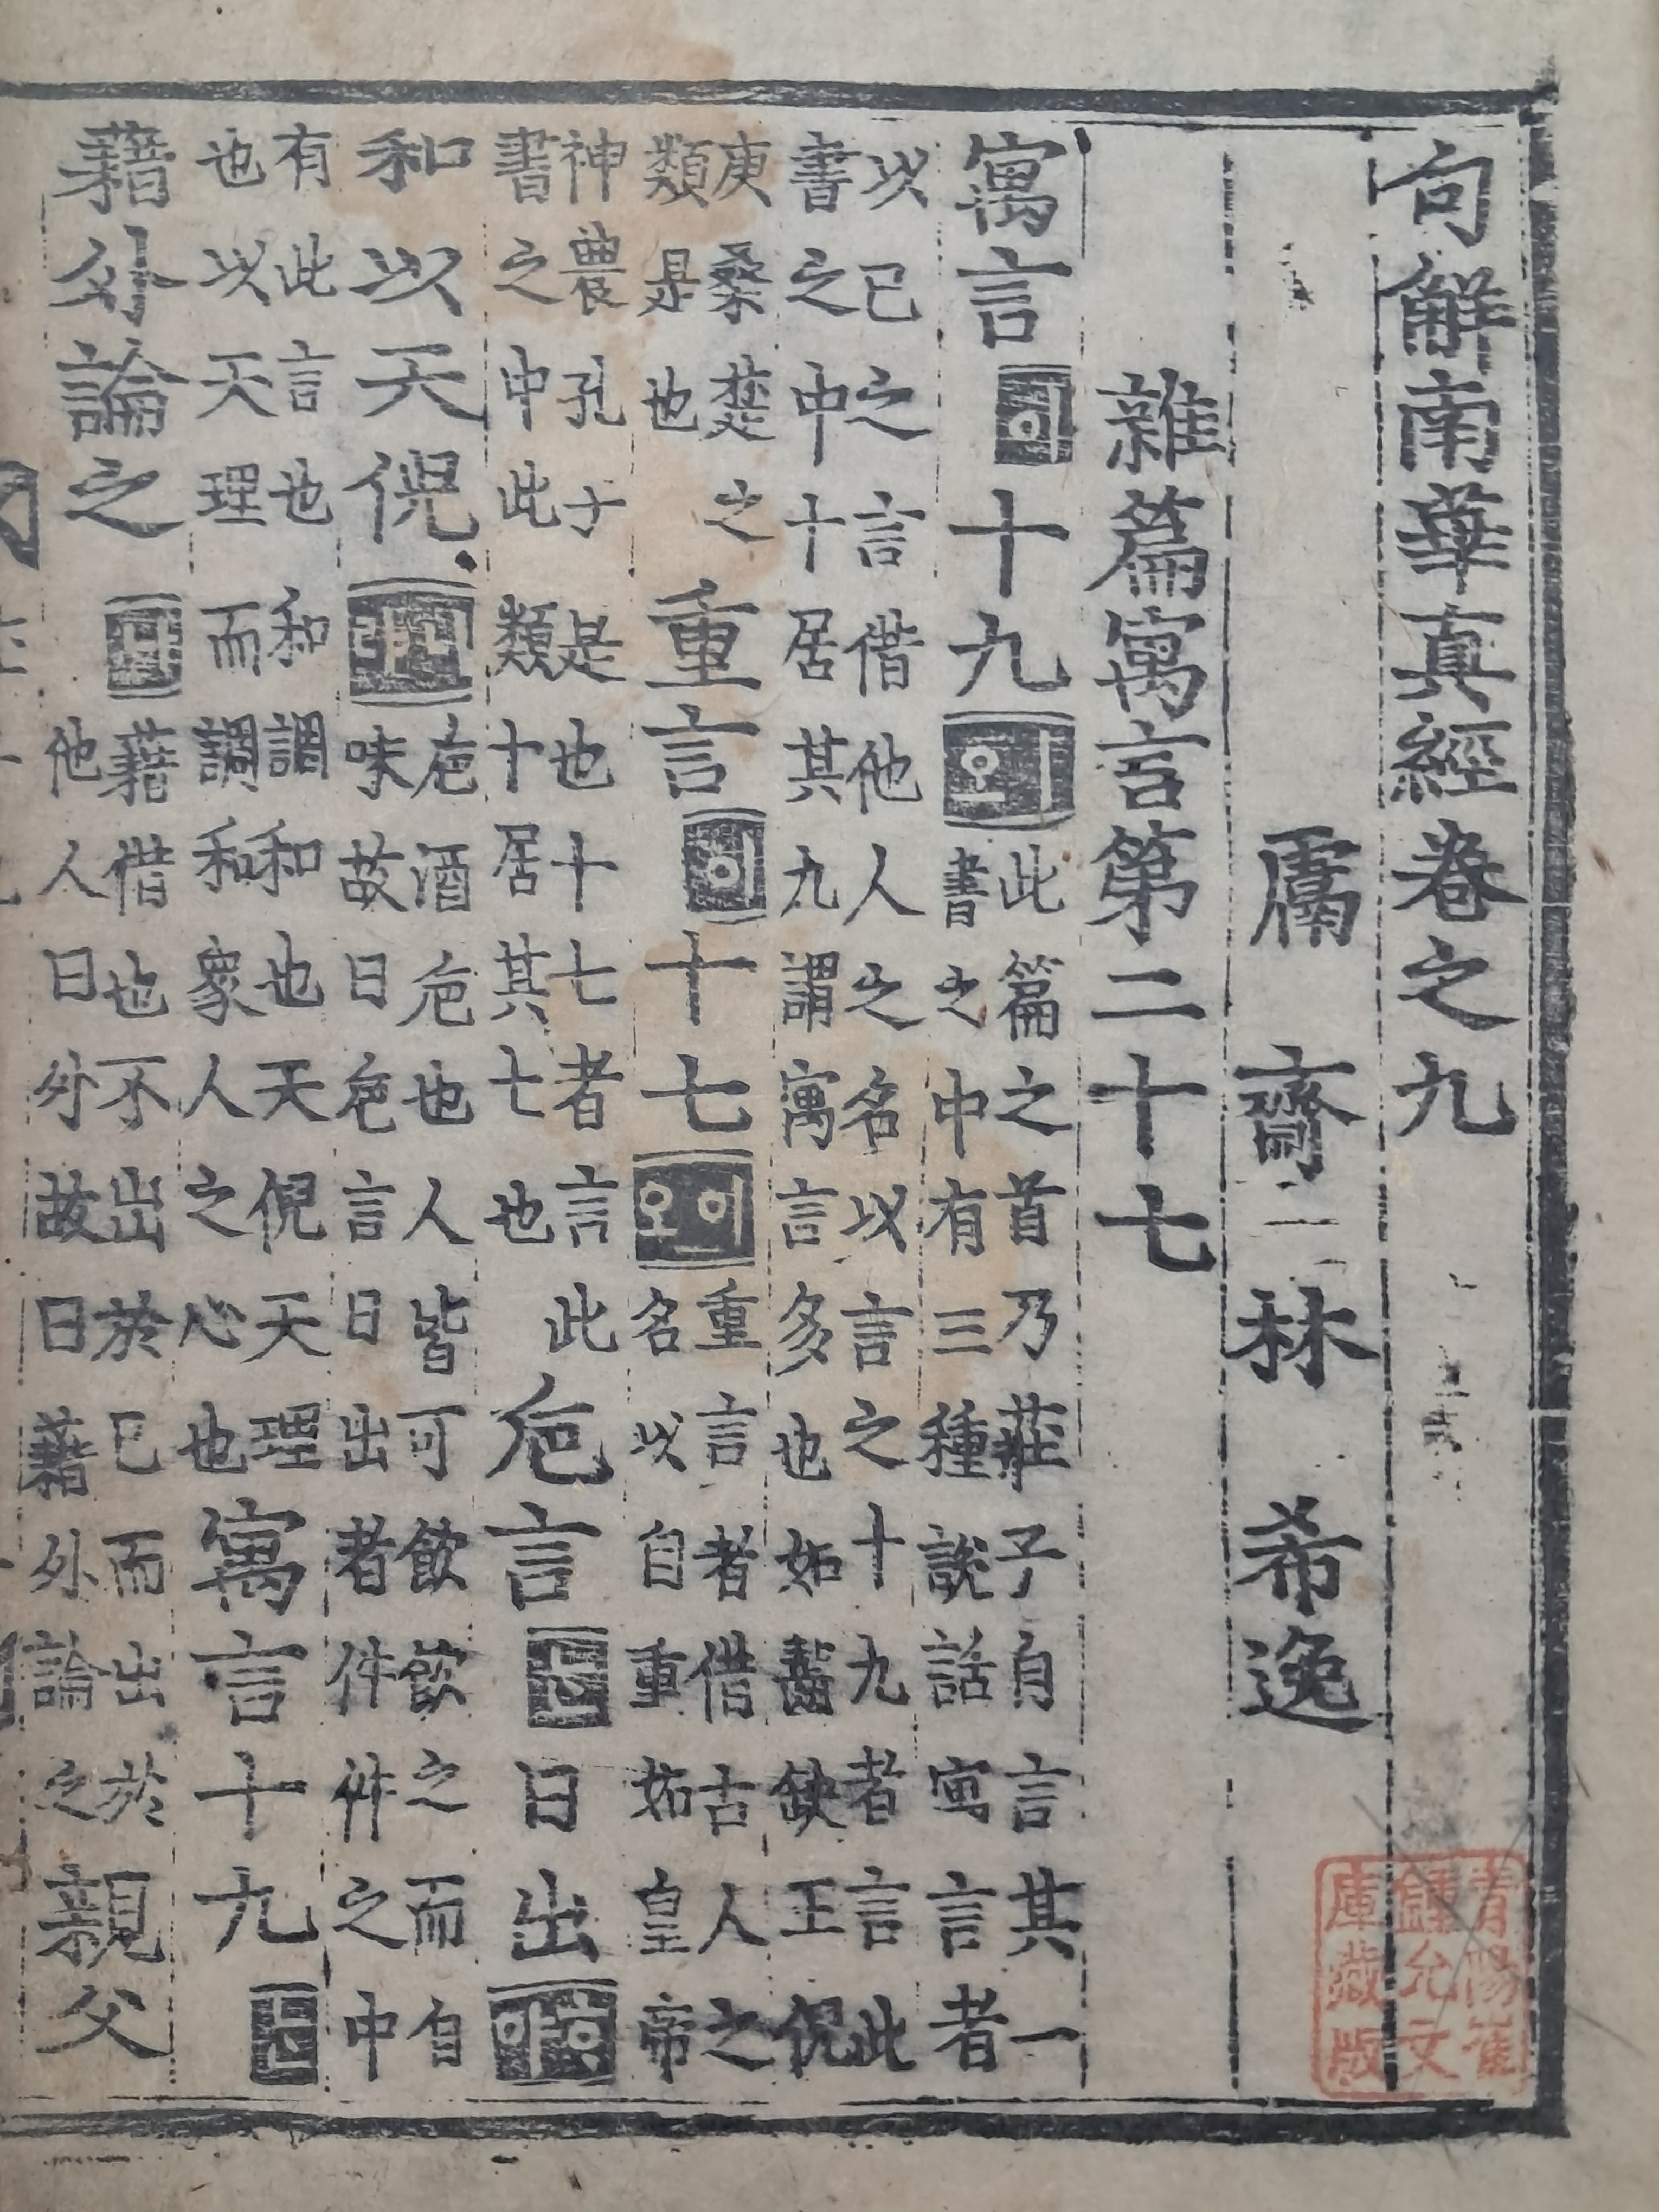 句解南華真經卷之九
鬳齋 林 希逸
雜篇寓言第二十七
寓言十九此篇之首乃莊子自言其一書之中有三種說話寓言者
以己之言借他人之名以言之十九者言此書之中十居其九謂寓言多也如齧缺王倪
庚桑楚之類是也重言十七重言者借古人之名以自重如皇帝
神農孔子是也十七者言此書之中此類十居其七也卮言日出
和以天倪卮酒卮也人皆可飮飮之而自味故曰卮言日出者件件之中
有此言也和調和也天倪天理也以天理而調和衆人之心也寓言十九
藉外論之藉借也不出於己而出於他人曰外故曰藉外論之親父
青陽崔
鍾允文
庫藏版